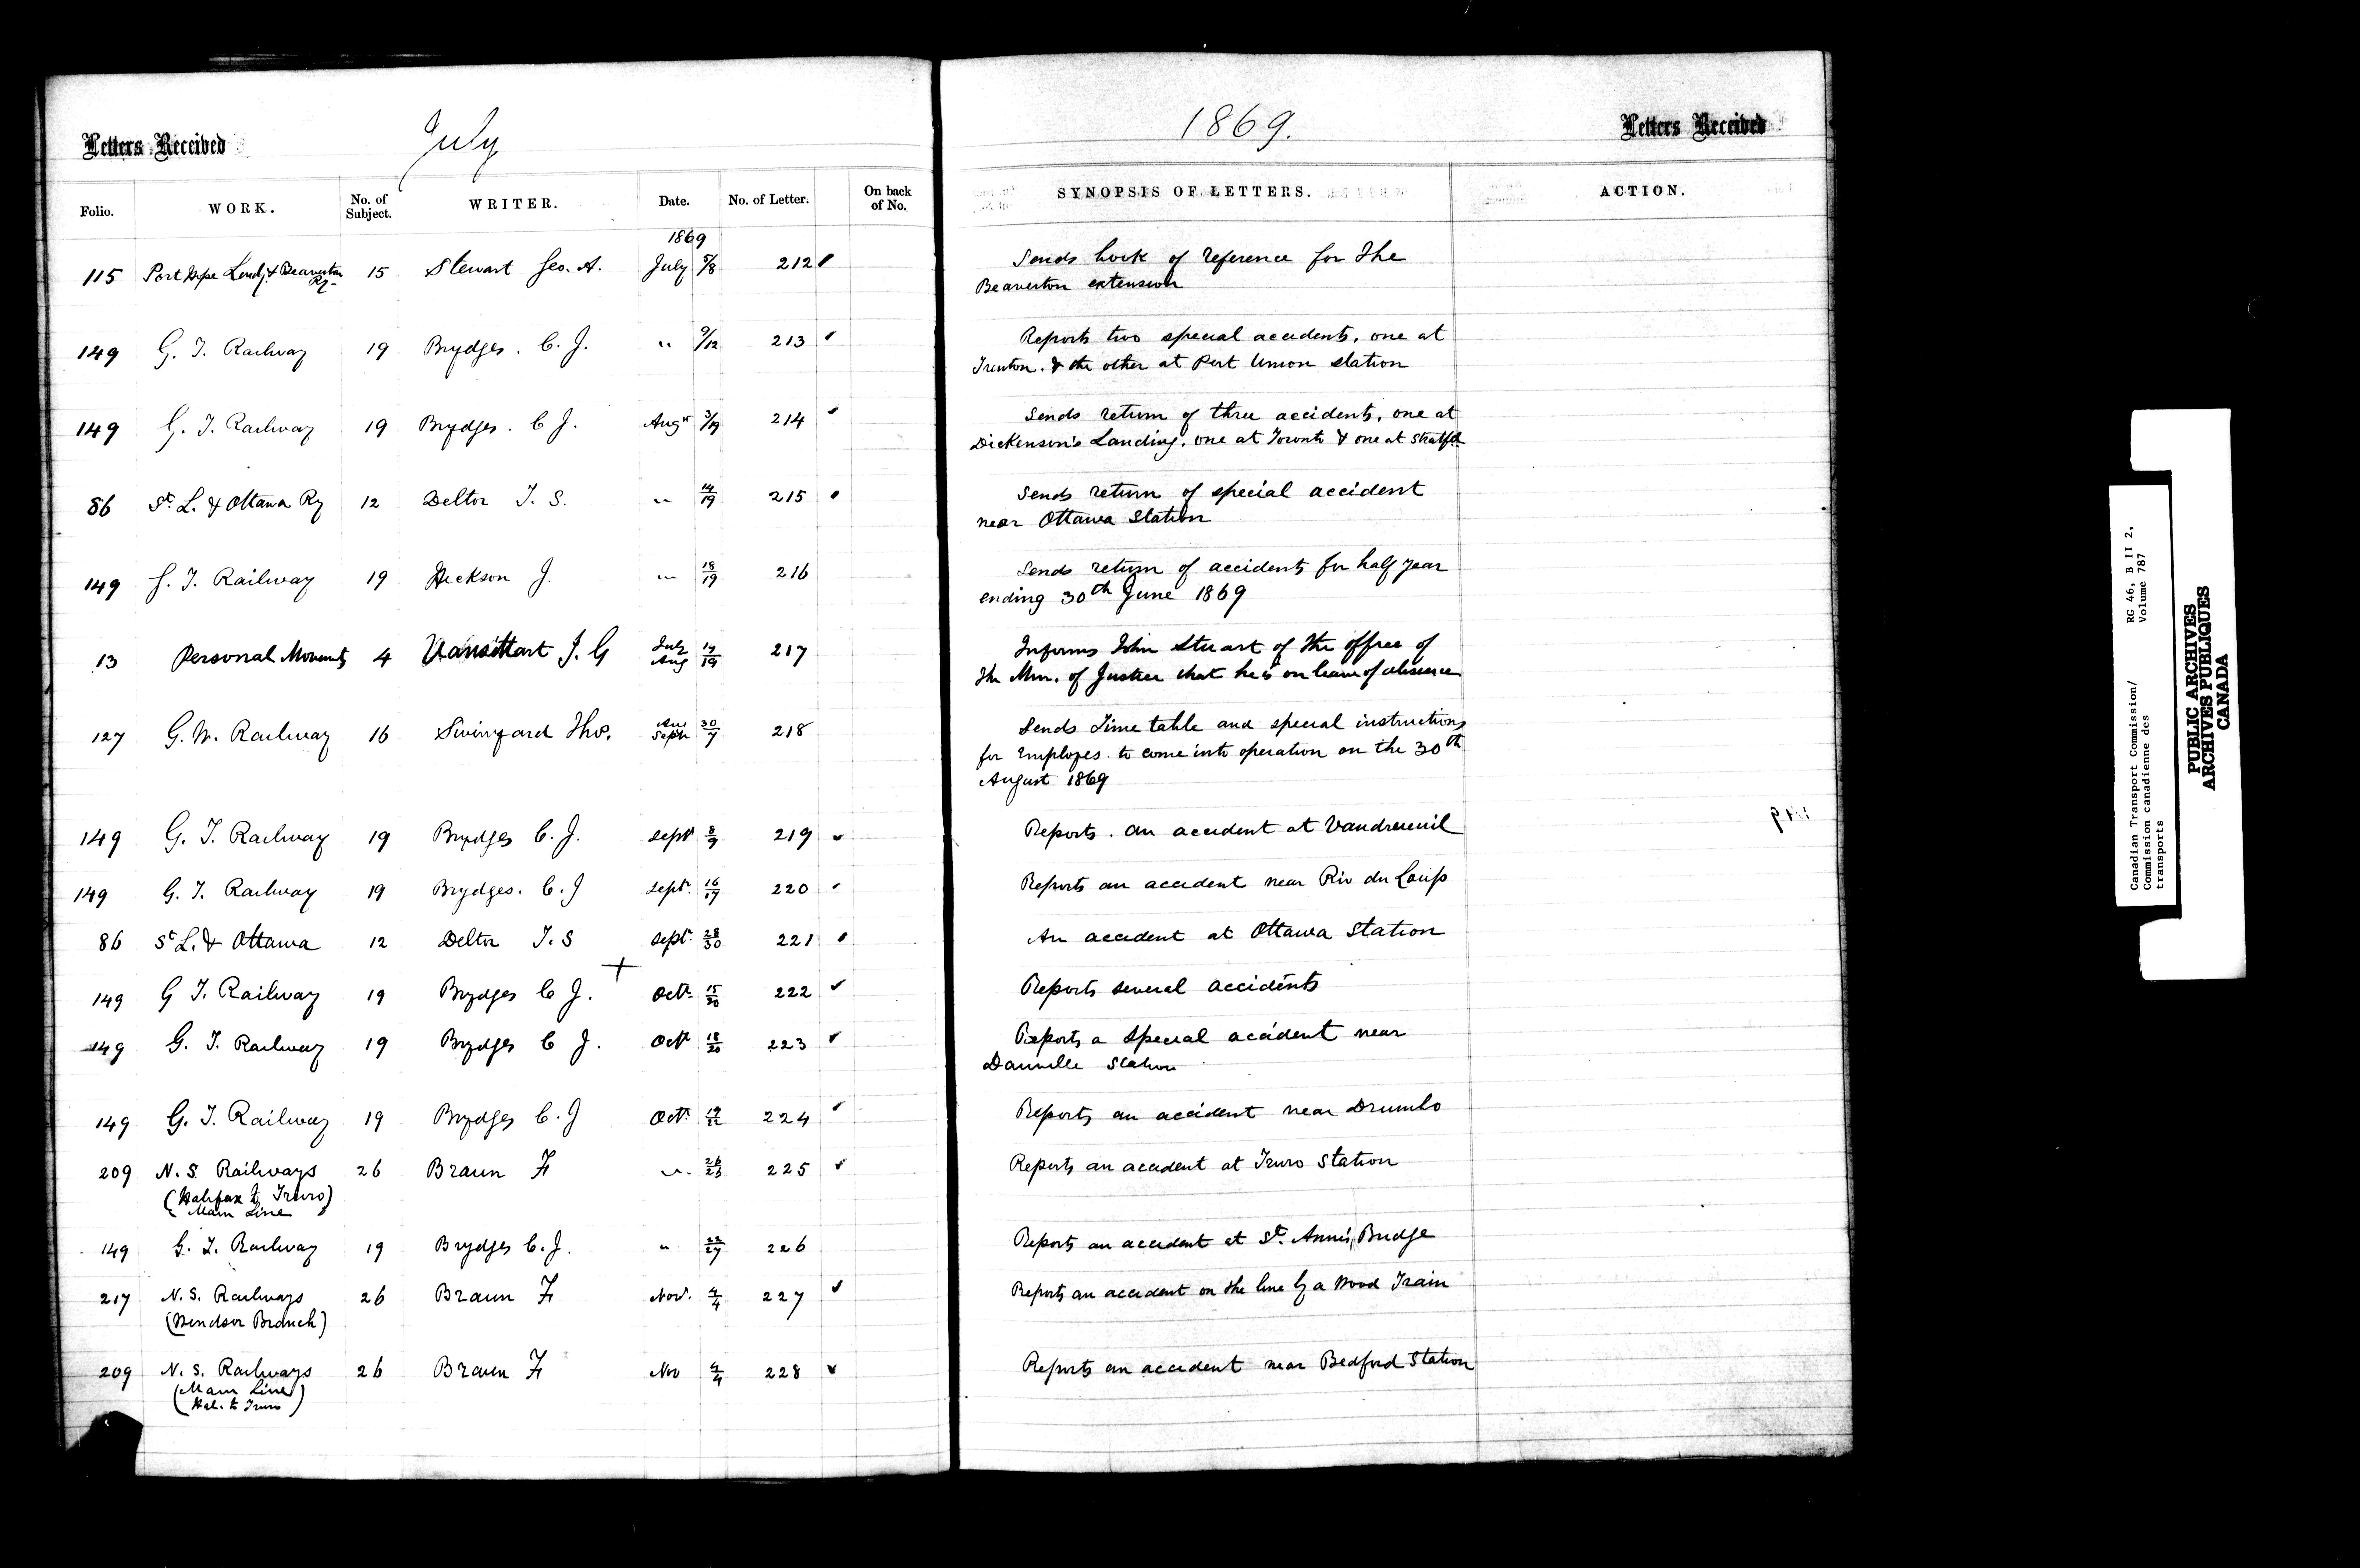 Letters Received
July
1869.
Letters Received
Folio. WORK. No. of Subject. WRITER. Date. No. of Letter. On back of No. SYNOPSIS OF LETTERS. ACTION.
1869
115 Port Hope Lindy. & Beaverton Ry- 15 Stewart Geo. A. July 5/8 212 Sends book of reference for the
Beaverton extension
149 G. T. Railway 19 Brydges. C. J. " 9/12 213 Reports two special accidents, one at
Trenton. & the other at Port Union station
149 G. T. Railway 19 Brydges. C J. Augst 3/19 214 Sends return of three accidents, one at
Dickenson's Landing, one at Toronto & one at Stratfd
86 St. L. & Ottawa Ry 12 Detlor T. S. " 14/19 215 Sends return of special accident
near Ottawa Station
149 G. T. Railway 19 Hickson J. " 18/19 216 Sends return of accidents for half year
ending 30th June 1869
13 Personal Movements 4 Vansittart J. G July Aug 19 217 Informs John Stuart of the office of
the Min. of Justice that he is on leave of absence
127 G. W. Railway 16 Swinyard Thos. Aug Sept 30/7 218 Sends Time table and special instructions
for Employes. to come into operation on the 30th
August 1869
149 G. T. Railway 19 Brydges C. J. Sept 8/9 219 Reports. an accident at Vaudreuil
149 G. T. Railway 19 Brydges. C. J Sept. 16/17 220 Reports an accident near Riv du Loup
86 St L. & Ottawa 12 Detlor T. S Sept. 28/30 221 An accident at Ottawa Station
149 G T. Railway 19 Brydges C J. Oct. 15/20 222 Reports several accidents
149 G. T. Railway 19 Brydges C J. Oct 18/20 223 Reports a Special accident near
Danville Station
149 G. T. Railway 19 Brydges C. J Oct. 19/22 224 Reports an accident near Drumbo
209 N. S. Railways 26 Braun F " 26/23 225 Reports an accident at Truro Station
(Halifax to Truro)
Main Line
149 G. T. Railway 19 Brydges C. J. " 22/27 226 Reports an accident at St. Anne's Bridge
217 N. S. Railways 26 Braun F Nov. 4/4 227 Reports an accident on the line by a Wood Train
(Windsor Branch)
209 N. S. Railways 26 Braun F Nov 4/4 228 Reports an accident near Bedford Station
(Main Line)
(Hal. to Truro)
Canadian Transport Commission/ RG 46, B II 2,
Commission canadienne des Volume 787
transports
PUBLIC ARCHIVES
ARCHIVES PUBLIQUES
CANADA